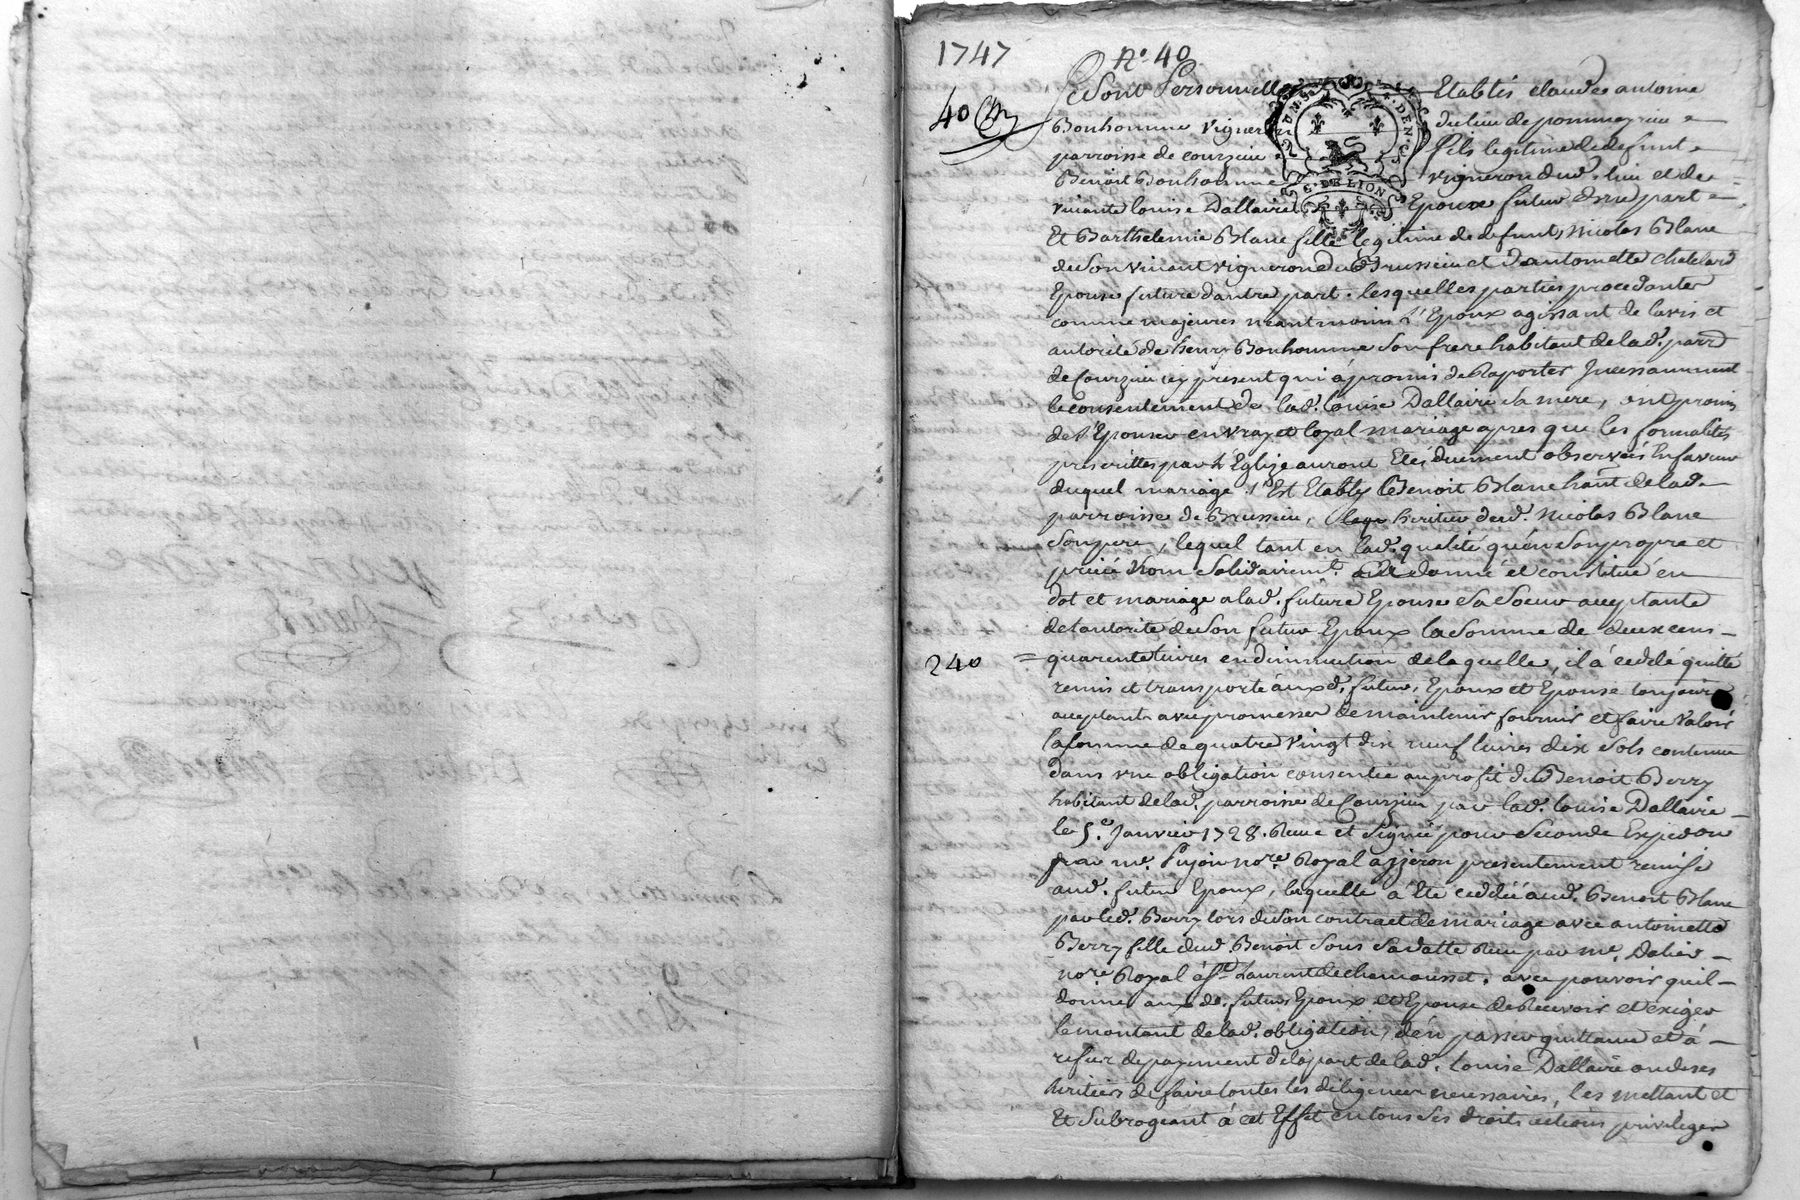 1747
n.º 40
40
Se Sont Personnellem Etablis claude antoine
Bonhomme vigneron du lieu de pommeyrieu
parroisse de courzieu fils legitime de defunt
Benoit Bonhomme vigneron dud. lieu et de
vivante Louise Dallaire Epoux futur d'une part
Et Barthelemie Blanc fille legitime de defunt Nicolas Blanc
de son vivant vigneron du Brussieu et d'antoinette chatelard
Epouse future d'autre part. lesquelles parties procedantes
comme majeures néantmoins L'Epoux agissant de lavis et
autorité de henry Bonhomme son frere habitant de lad. parr.
de Courzieu icy present qui à promis de Raporter Incessamment
le consentement de lad. Louise Dallaire sa mere, ont promis
de s'Epouser en vray et loyal mariage apres que les formalités
prescrittes par L'Eglize auront Etés duement observées En faveur
duquel mariage s'Est Etably Benoit Blanc hant. de lad.
parroisse de Brussieu, heritier dud. Nicolas Blanc
son pere, lequel tant en lad. qualité qu'en son propre et
privé nom solidairemt. a donné et constitué en
dot et mariage a lad. future Epouse sa soeur acceptante
de lautorité de son futur Epoux la somme de deux cens
240 = quarente livres en diminution de laquelle, il à ceddé quitté
remis et transporté aux d. futurs Epoux et Epouse toujours
acceptants avec promesse de maintenir fournir et faire valoir
la somme de quatre vingt dix neuf livres dix sols contenue
dans une obligation consentie au profit de Benoit Berry
habitant de lad. parroisse de Courzieu par lad. Louise Dallaire
le 5.e Janvier 1728. Reçue et signée pour seconde Expedon
par me. Pujoin nore. Royal a presentement remise
aud. futur Epoux, laquelle à Eté ceddée aud. Benoit Blanc
par led. Berry lors de son contract de mariage avec antoinette
Berry fille dud. Benoit sous sa datte Reçu par me. Dalier
nore. Royal à St. Laurent de chamousset. avec pouvoir quil
donne aux d. futurs Epoux et Epouse de Recevoir et exiger
le montant de lad. obligation, d'en passer quittance et à
refus de payement de la part de lad. Louise Dallaire ou de ses
heritiers de faire toutes les diligences necessaires, les mettant et
Et subrogeant à cet Effet en tous ses droits actions privileges
G. DE LION